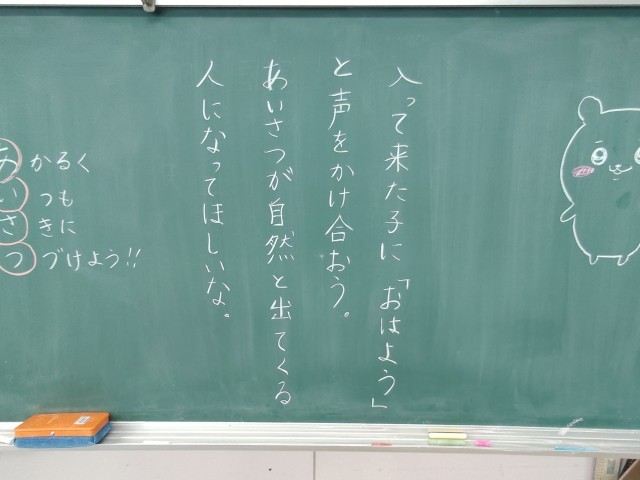 入って来た子に「おはよう」
と声をかけ合おう。
あいさつが自然と出てくる
人になってほしいな。
あかるく
いつも
さきに
つづけよう!!